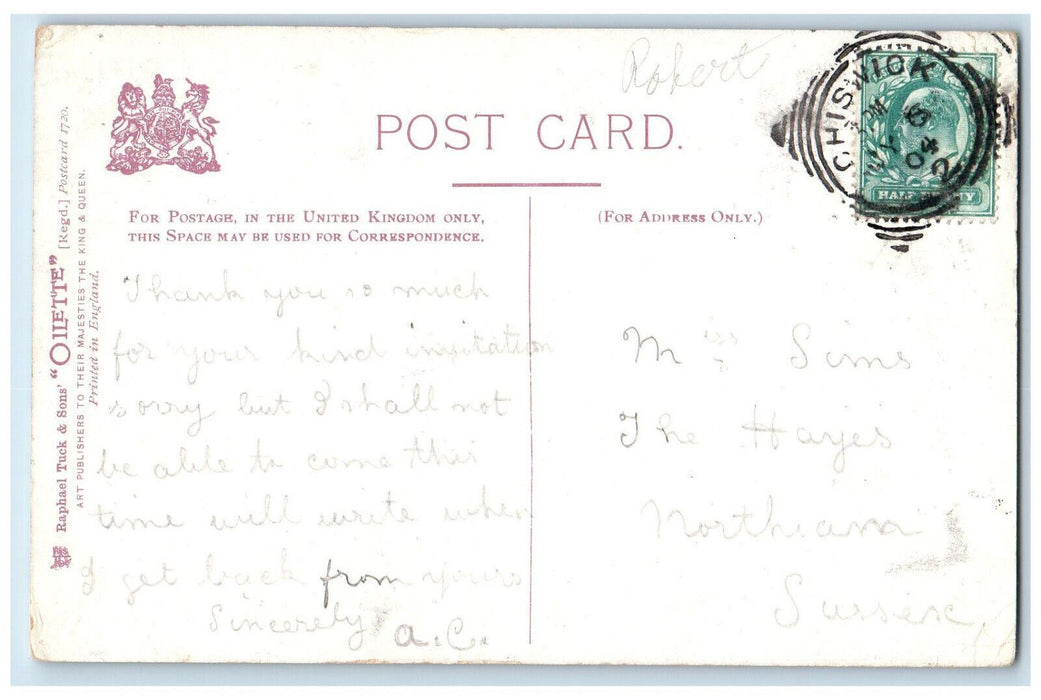 Robert
POST CARD.
FOR POSTAGE, IN THE UNITED KINGDOM ONLY,
THIS SPACE MAY BE USED FOR CORRESPONDENCE.
(FOR ADDRESS ONLY.)
Raphael Tuck & Sons' "OILETTE" [Regd.] Postcard 1720.
ART PUBLISHERS TO THEIR MAJESTIES THE KING & QUEEN.
Printed in England.
CHISWICK
PM
6
04
2
HALF PENNY
Thank you so much
for your kind invitation
sorry but I shall not
be able to come this
time will write when
I get back from yours
Sincerely a.C.
Miss Sims
The Hayes
Northiam
Sussex